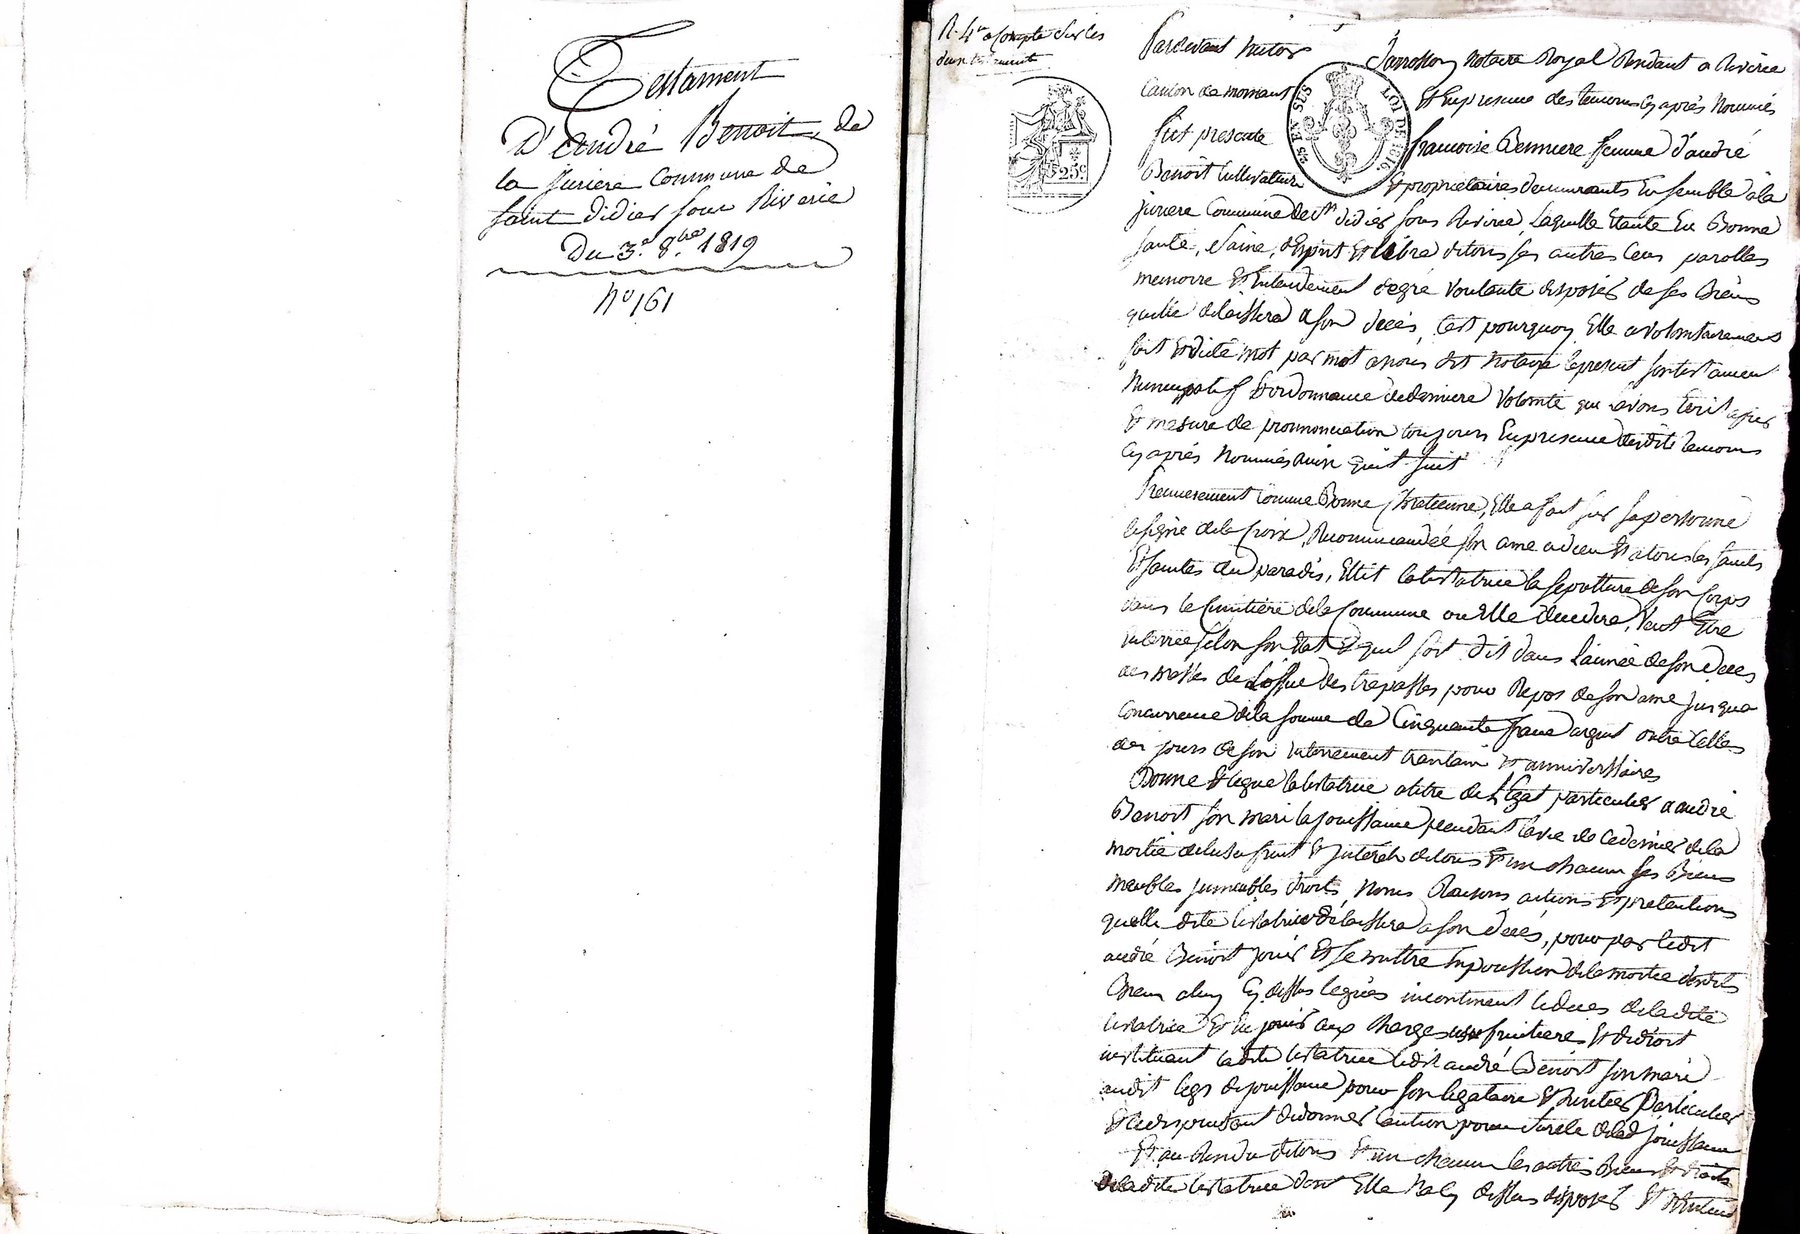 Testament
D'André Benoit, de
la juriere Commune de
saint didier sous Riverie
Du 3.e 8.bre 1819
N.o 161
R. 4 a Compte sur les
Pardevant
Notaire Royal Residant a Riverie
Canton de mornant
Et En presence des temoins Cy après Nommés
fut presente
francoise femme d'andré
25c.
LOI DE 1816
Benoit Cultivateur
Et proprietaires demeurants Ensemble a la
juriere Commune de St didier sous Riverie, Laquelle Etante En Bonne
santé, saine, d'Esprit Et Libre de tous ses autres Cens parolles
memoire Et Entendement degré voulante disposer de ses Biens
quelle delaissera a son decés, C'est pourquoy Elle a volontairement
fait Et dicté mot par mot a nous dit Notaire le present son testament
Nuncupatif Et ordonnance de derniere volonté que avons Ecrit
Et mesure de prononciation toujours En presence desdits temoins
Cy après Nommés ainsi qu'il suit
Premierement Comme Bonne Chretienne, Elle a fait sur sa personne
le signe de la Croix, Recommandée son ame a dieu Et a tous les saints
Et saintes du paradis, Ellit la testatrice la sepulture de son Corps
dans le Cimitiére de la Commune ou Elle decedera, Veut Etre
enterrée selon son Etat Et quil soit dit dans L'année de son decés
des messes de L'office des trepassés pour Repos de son ame jusqua
Concurrence de la somme de Cinquante franc argent outre Celles
des jours de son enterrement trantain Et anniverssaires
Donne Et legue la testatrice a titre de Légat particulier a andré
Benoit son mari la jouissance pendant la vie de Ce dernier de la
moitié de lusufruit Et Interets de tous Et un chacun ses Biens
meubles jmmeubles droits, Noms Raisons actions Et pretentions
quelle dite testatrice délaissera a son decés, pour par ledit
andré Benoit jouir Et se mettre En possession de la moitie desdits
Biens a luy Cy dessus legués incontinent le deces de la dite
testatrice Et En jouir aux charges usufruitiere Et de droit
instituant la dite testatrice ledit andré Benoit son mari
audit legs de jouissance pour son legataire Et heritier Particulier
Et le dispensant de donner Caution pour sureté de lad. jouissance
Et au Residu de tous Et un chacun les autres Biens Et droits
de la dite testatrice dont Elle Na Cy dessus disposés Et